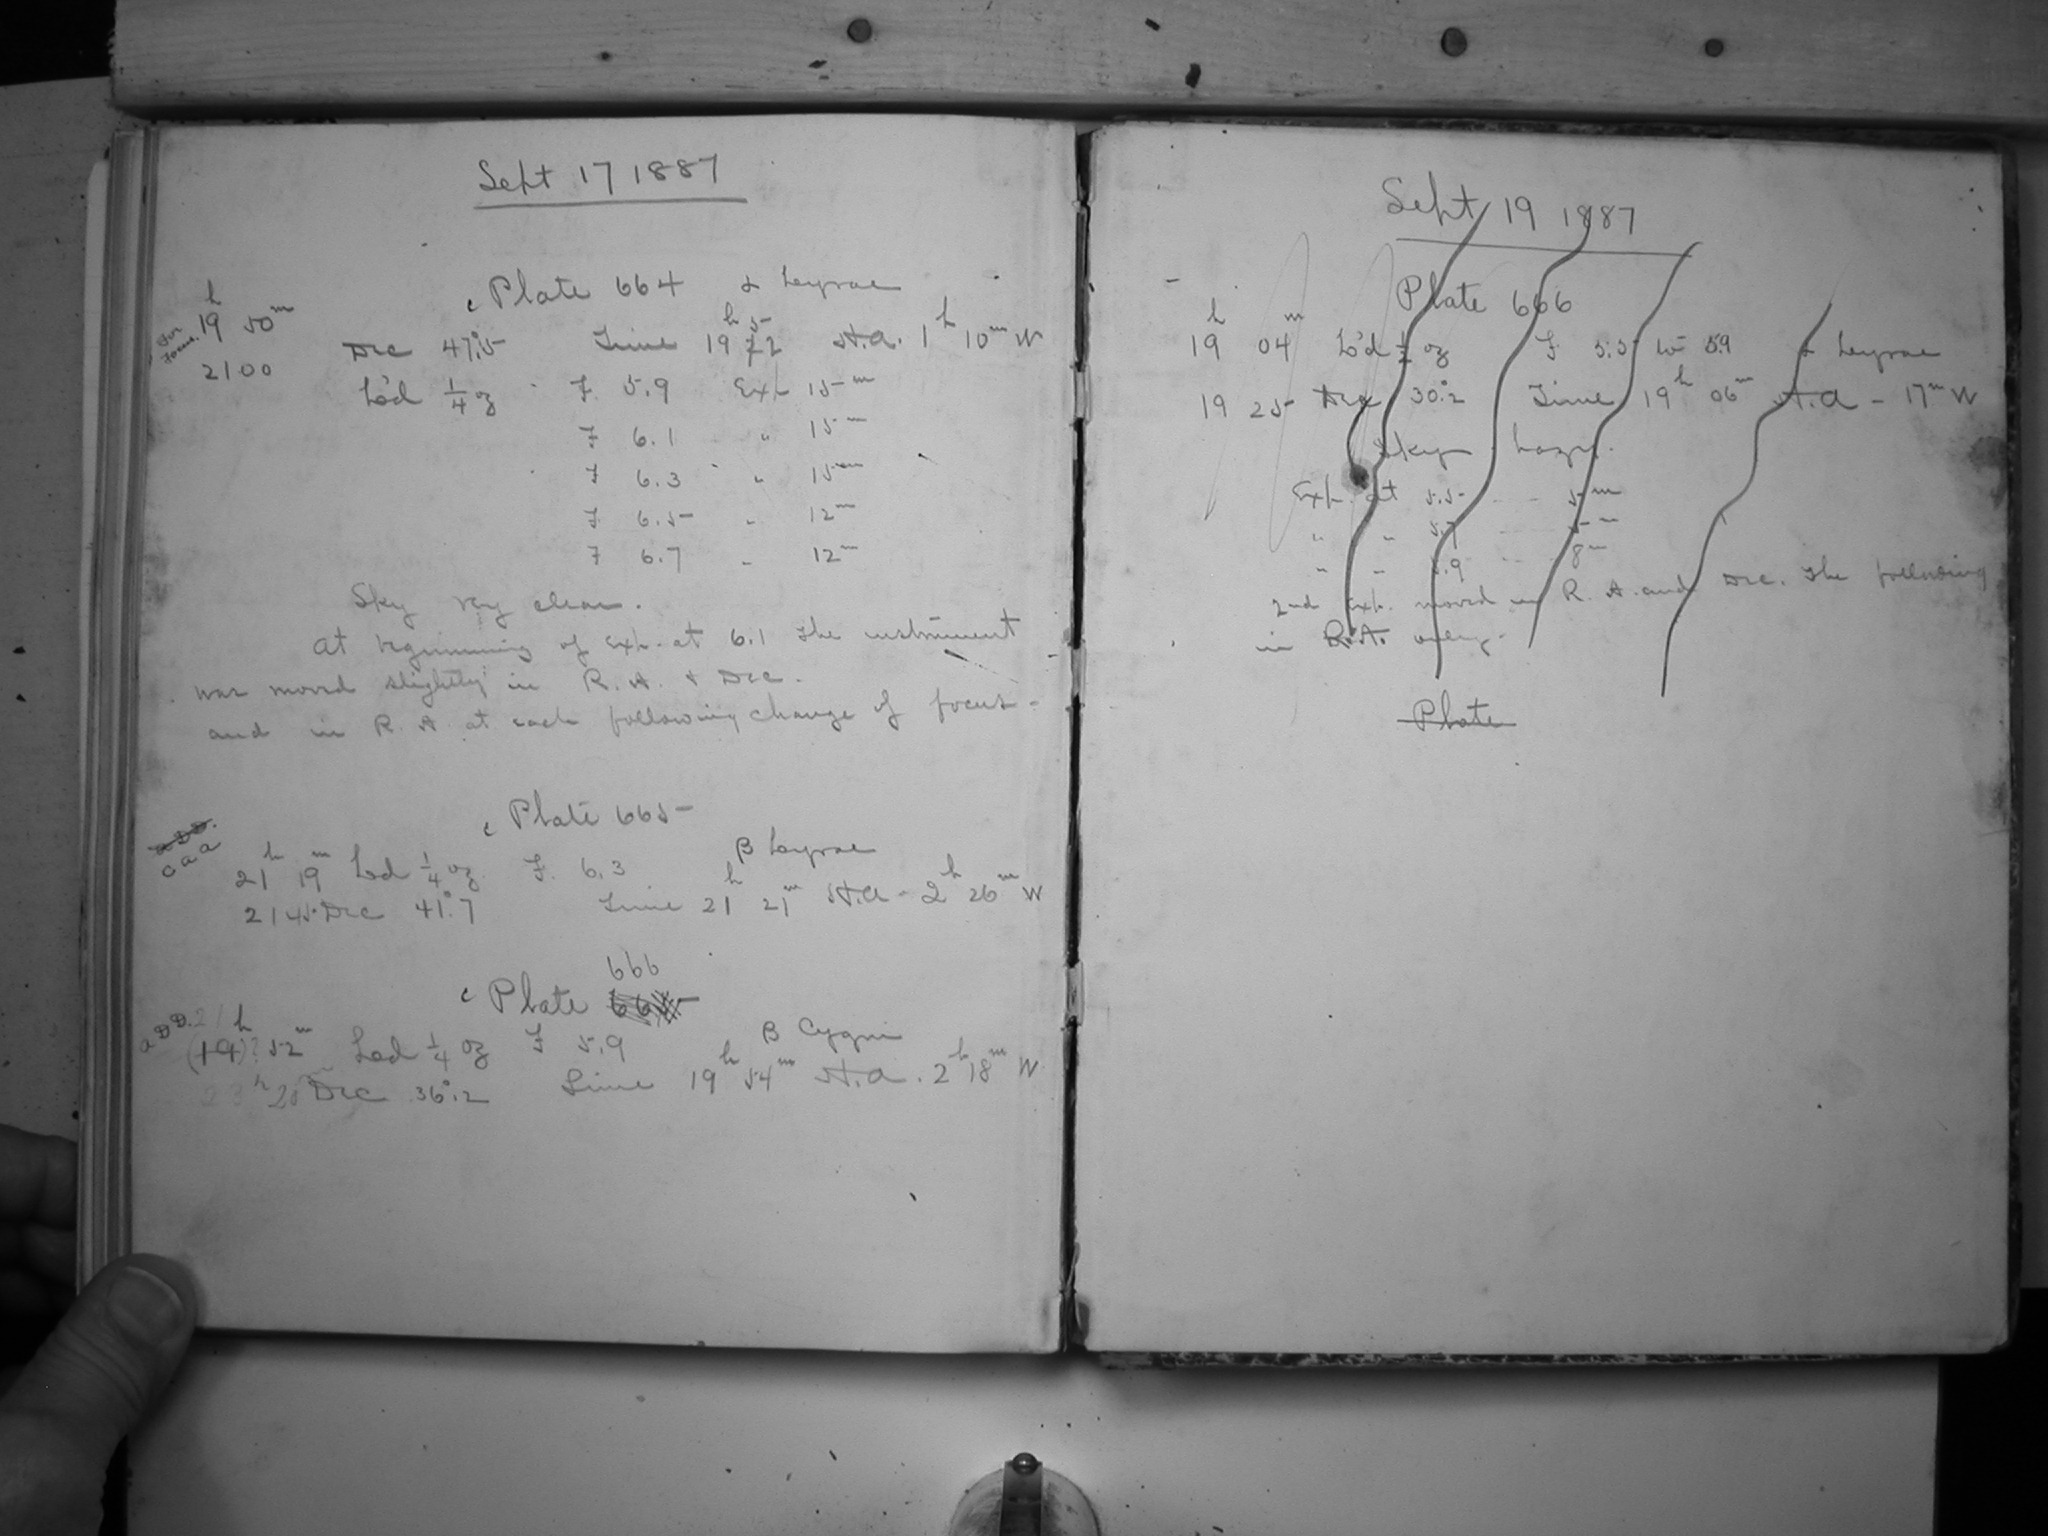 Sept 17 1887
c Plate 664 α Lyrae
For Focus. 19h 50m
Dec 47°.5 Time 19h 52 H.A. 1h 10m W
21 00
L'd 1/4 oz F. 5.9 Exp. 15m
F 6.1 " 15m
F 6.3 " 15m
F. 6.5 " 12m
F 6.7 " 12m
Sky very clear.
At beginning of Exp. at 6.1 the instrument
was moved slightly in R. A. & Dec.
and in R. A. at each following change of focus.
c Plate 665
β Lyrae
C a a
21h 19m L'd 1/4 oz F. 6.3
21 45 Dec 41°.7 Time 21h 21m H.A - 2h 26m W
666
c Plate
β Cygni
a D D. 21h
(19)? 52m L'd 1/4 oz F 5.9
23h 20m Dec 36°.2 Time 19h 54m H.A. 2h 18m W
Sept 19 1887
Plate 666
19h 04m L'd 1/2 oz F. 5.5 to 5.9 α Lyrae
19 25 Dec 30°.2 Time 19h 06m H.A - 17m W
Sky hazy.
Exp. at 5.5 5m
" " 5.7 5m
" " 5.9 8m
2nd Exp. moved in R. A. and Dec. The following
in R.A. only.
Plate